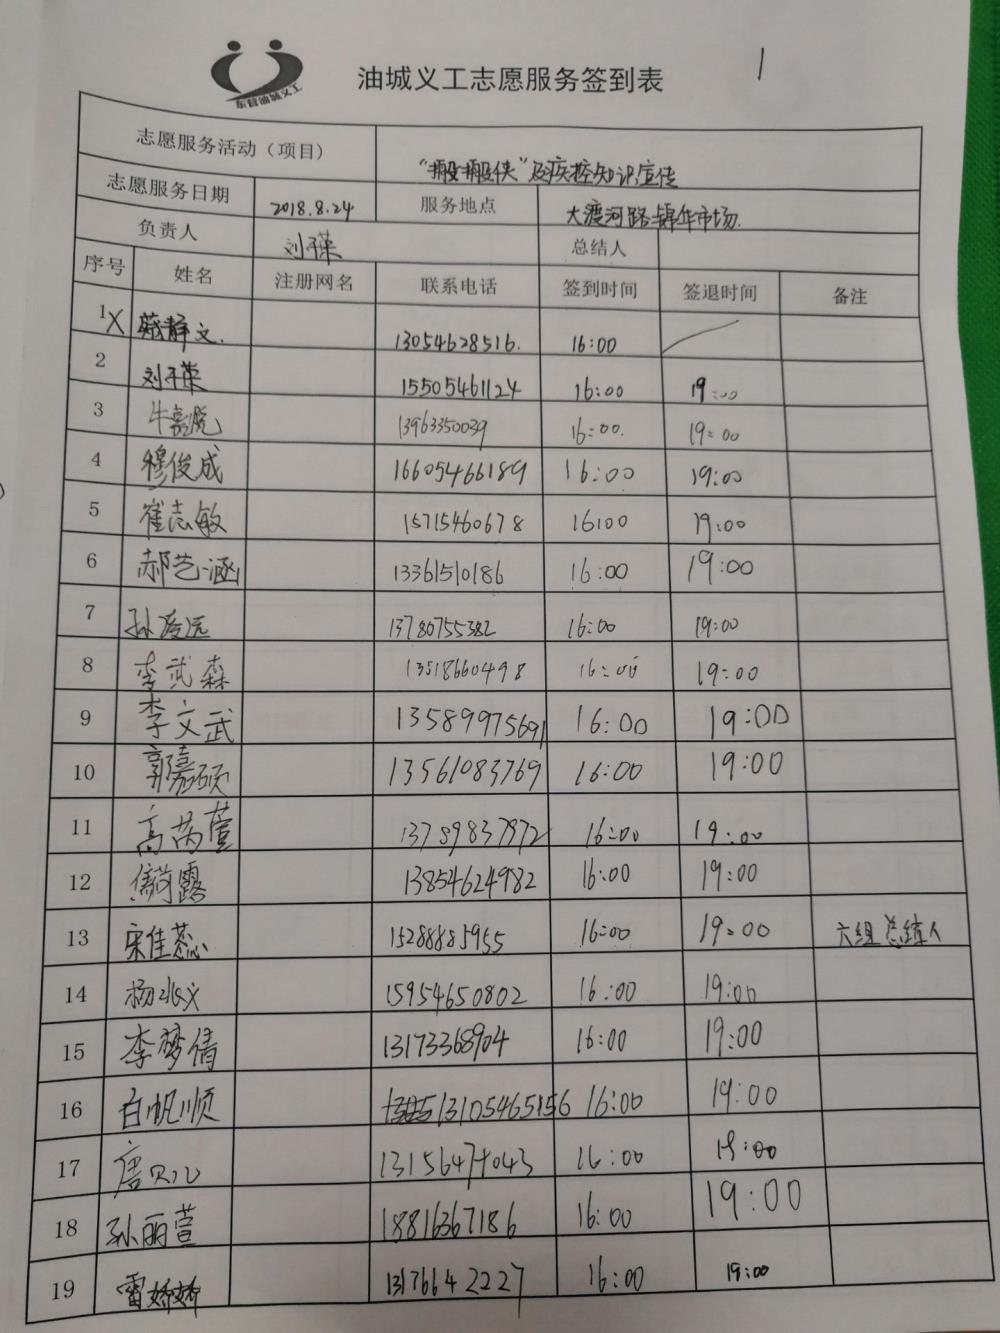 东营油城义工
油城义工志愿服务签到表
1
志愿服务活动（项目） “搬搬侠”及疾控知识宣传
志愿服务日期 2018.8.24 服务地点 大渡河路锦华市场.
负责人 刘子荣 总结人
序号 姓名 注册网名 联系电话 签到时间 签退时间 备注
1 X 蔡静文. 13054628516. 16:00
2 刘子荣 15505461124 16:00 19:00
3 牛嘉悦 13963350039 16:00. 19:00
4 穆俊成 16605466189 16:00 19:00
5 崔志敏 15715460678 16:00 19:00
6 郝艺涵 13361510186 16:00 19:00
7 孙 13780755382 16:00 19:00
8 李武森 13518660498 16:00 19:00
9 李文武 13589975691 16:00 19:00
10 郭嘉硕 13561083769 16:00 19:00
11 高芮萱 13789837972 16:00 19:00
12 露 13854624982 16:00 19:00
13 宋佳蕊 15288885955 16:00 19:00 六组总结人
14 杨 15954650802 16:00 19:00
15 李梦倩 13173368904 16:00 19:00
16 白帆顺 13105465156 16:00 19:00
17 唐贝儿 13156471043 16:00 19:00
18 孙丽萱 18816367186 16:00 19:00
19 雷娇娇 13176642227 16:00 19:00